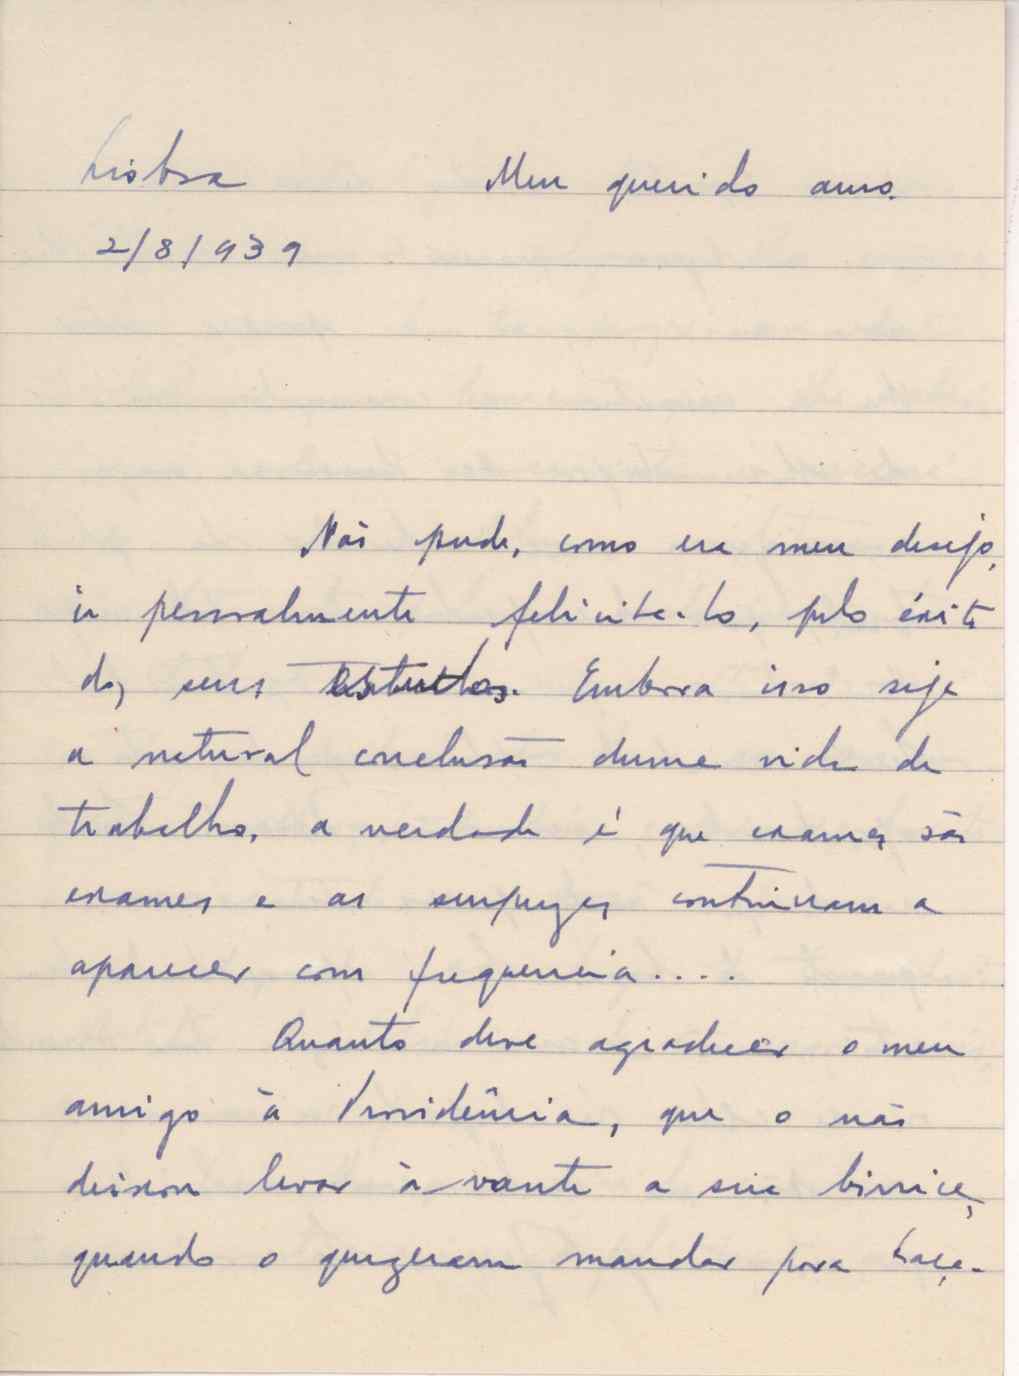 Lisboa
Meu querido amo.
2/8/939
Não pude, como era meu desejo,
ir pessoalmente felicita-lo, pelo éxito
dos seus estudos. Embora isso seja
a natural conclusão duma vida de
trabalho, a verdade é que exames são
exames e as surprezas continuam a
aparecer com frequencia....
Quanto deve agradecer o meu
amigo à Providência, que o não
deixou levar à vante a sua birrice,
quando o quizeram mandar para